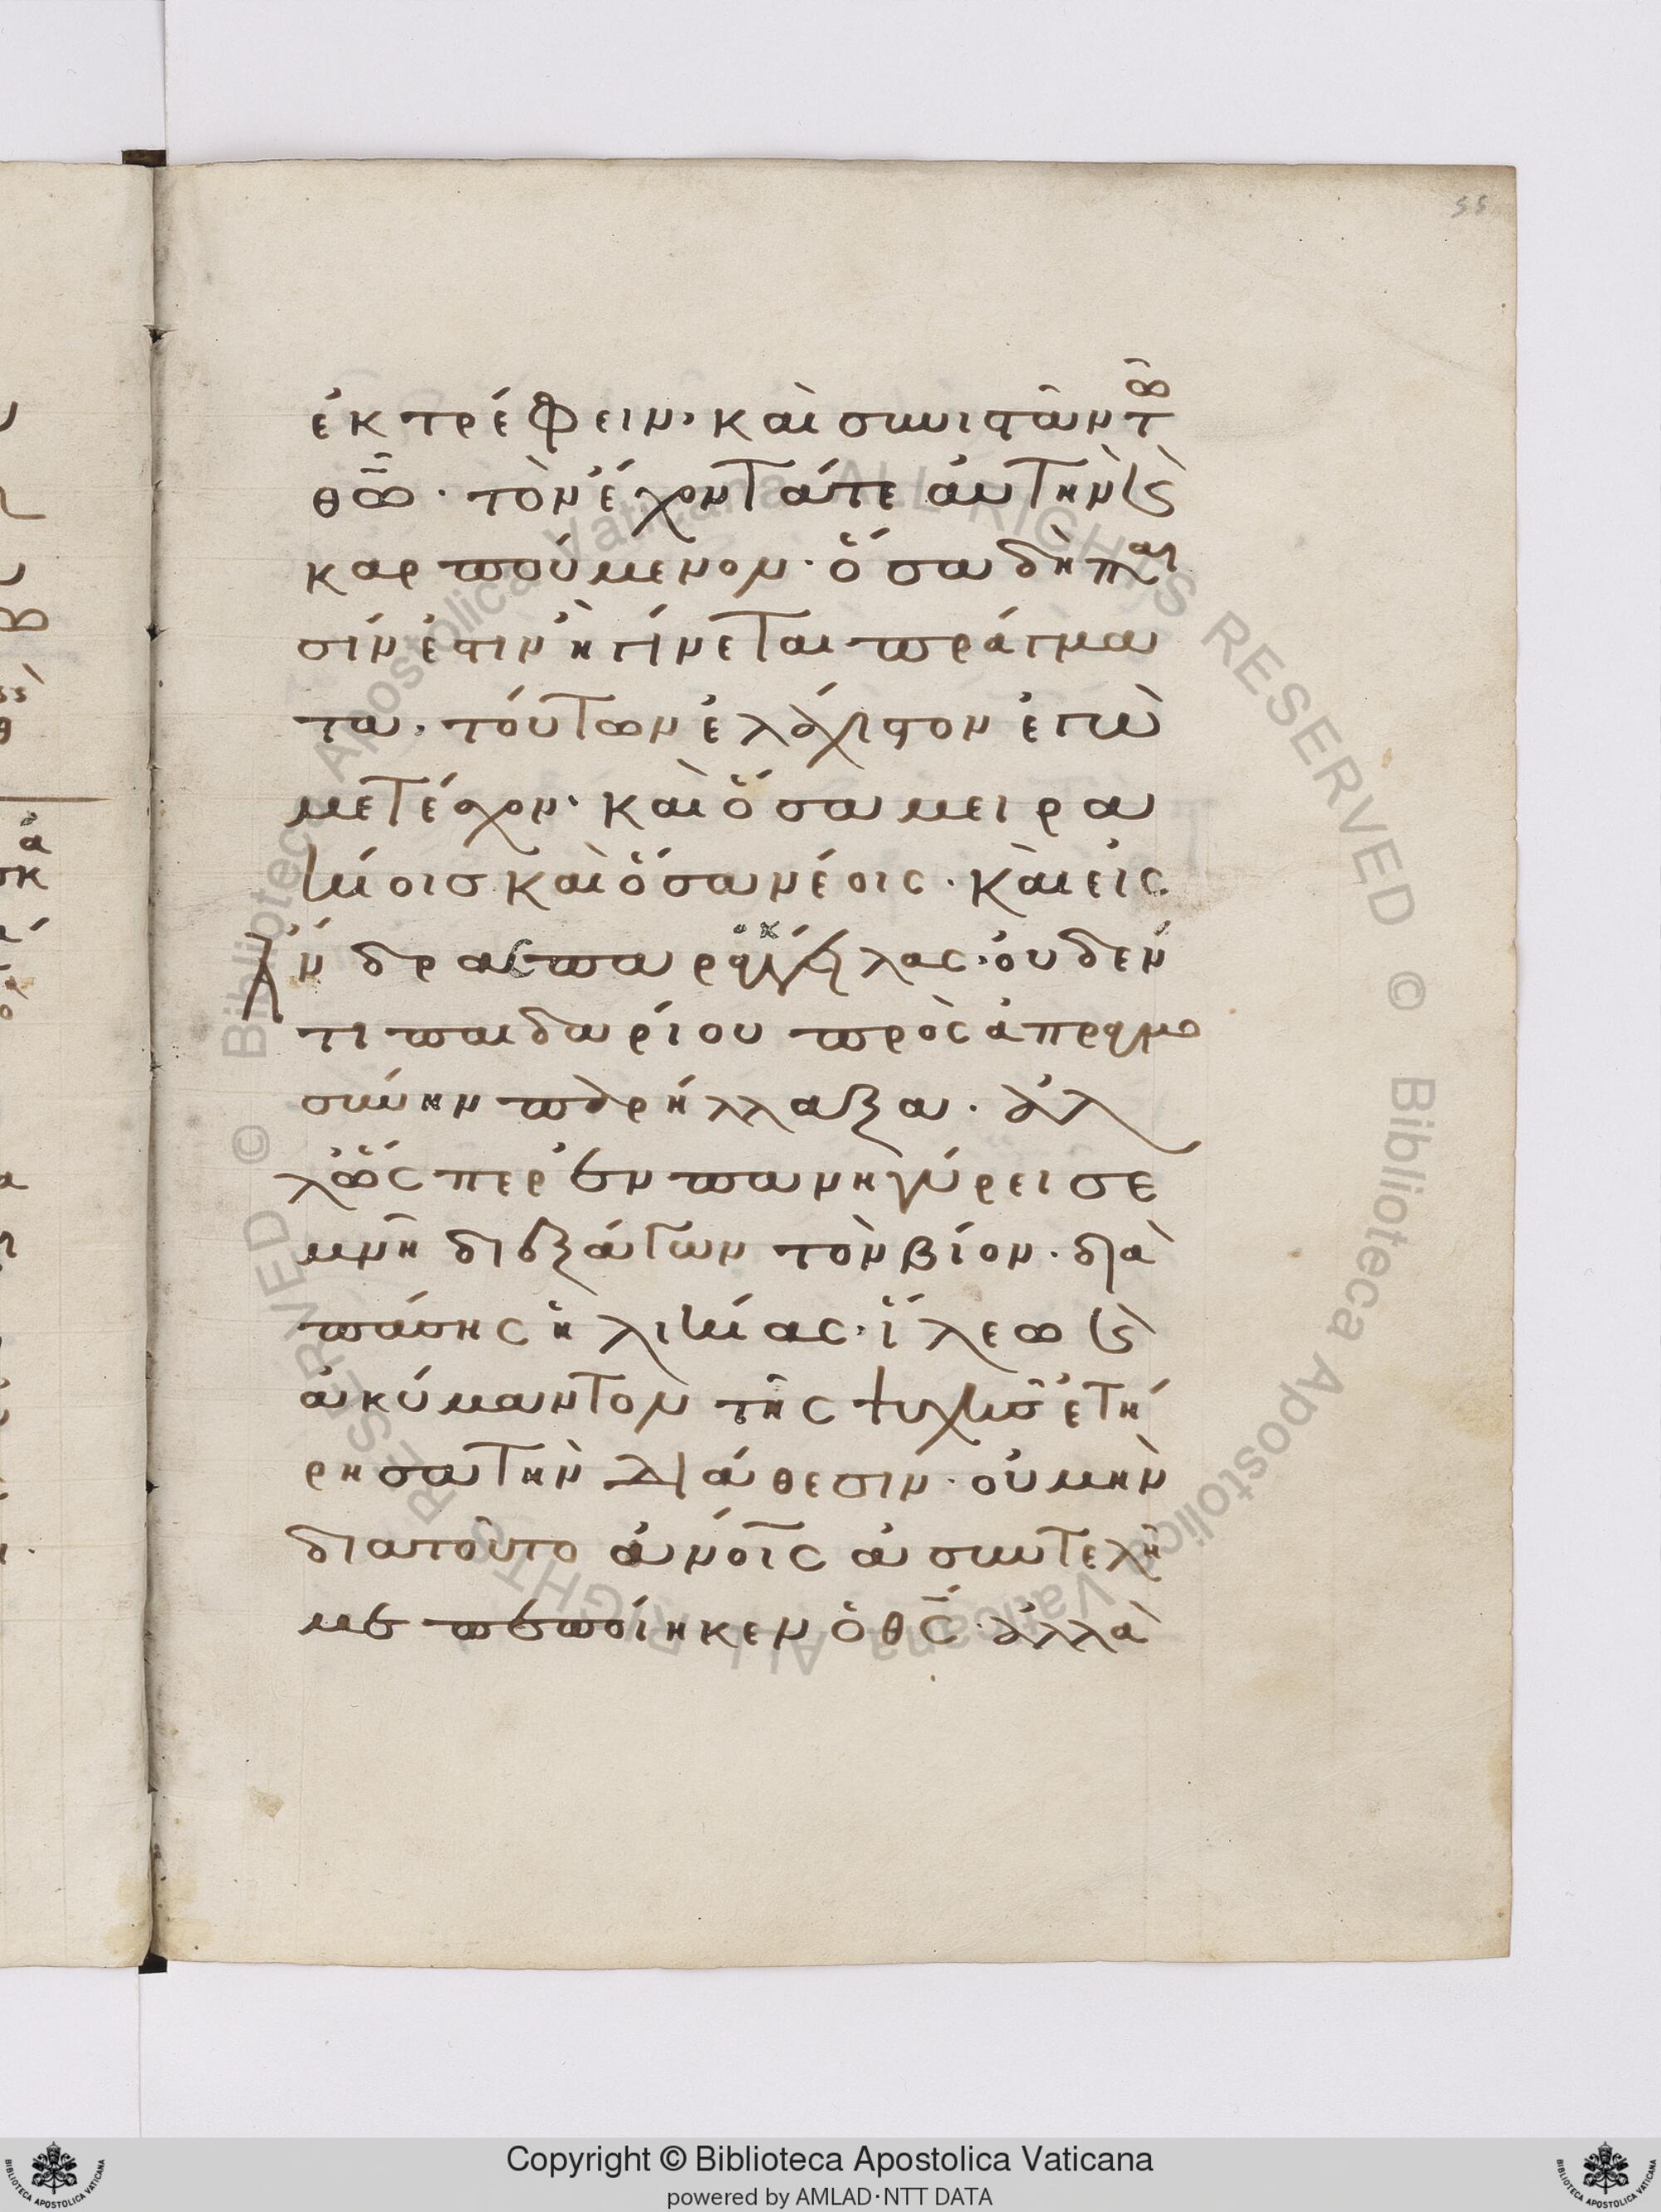 55
ἐκτρέφειν· καὶ συνιστᾶν τῶ
θῶ· τὸν ἔχοντά τε ἀυτὴν ϗ
καρπούμενον· ὅσα δὴ πᾶ
σίν ἐστιν ἢ γίνεται πράγμα
τα· τούτων ἐλάχιστον ἐγὼ
μετέσχον· καὶ ὅσα μειρα
κίοις καὶ ὅσα νέοις· καὶ εἰς
ἄνδρας παραγγείλας· ὀυδέν
τι παιδαρίου πρὸς ἀπραγμο
σύνην παρήλλαξα· ἀλ
λὥσπερ ἐν πανηγύρει σε
μνῆ διεξάγων τὸν βίον· διὰ
πάσης ἡλικίας· ἵλεω ϗ
ἀκύμαντον τῆς ψυχῆς ἐτή
ρησα τὴν διάθεσιν· ὀυ μὴν
διατοῦτο ἀνοίς ἀσυντελῆ
με πεποίηκεν ὁ θς· ἀλλὰ
Biblioteca Apostolica Vaticana ALL RIGHTS RESERVED ©
Biblioteca Apostolica Vaticana ALL RIGHTS RESERVED ©
Copyright © Biblioteca Apostolica Vaticana
powered by AMLAD·NTT DATA
BIBLIOTECA APOSTOLICA VATICANA
BIBLIOTECA APOSTOLICA VATICANA